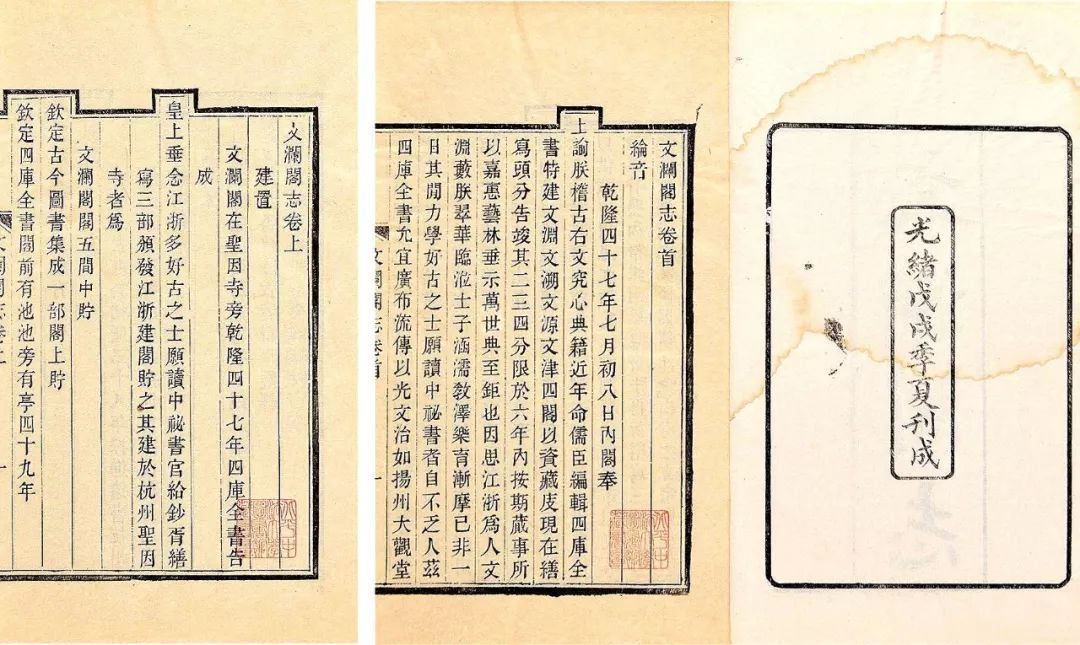 光緒戊戌季夏刊成
文瀾閣志卷首
綸音
乾隆四十七年七月初八日內閣奉
上諭朕稽古右文究心典籍近年命儒臣編輯四庫全
書特建文淵文溯文源文津四閣以資藏庋現在繕
寫頭分告竣其二三四分限於六年內按期蕆事所
以嘉惠藝林垂示萬世典至鉅也因思江浙爲人文
淵藪朕翠華臨涖士子涵濡敎澤樂育漸摩已非一
日其閒力學好古之士願讀中祕書者自不乏人茲
四庫全書允宜廣布流傳以光文治如揚州大觀堂
文瀾閣志卷首 一
文瀾閣志卷上
建置
文瀾閣在聖因寺旁乾隆四十七年四庫全書告
成
皇上垂念江浙多好古之士願讀中祕書官給鈔胥繕
寫三部頒發江浙建閣貯之其建於杭州聖因
寺者爲
文瀾閣閣五間中貯
欽定古今圖書集成一部閣上貯
欽定四庫全書閣前有池池旁有亭四十九年
文瀾閣志卷上 一